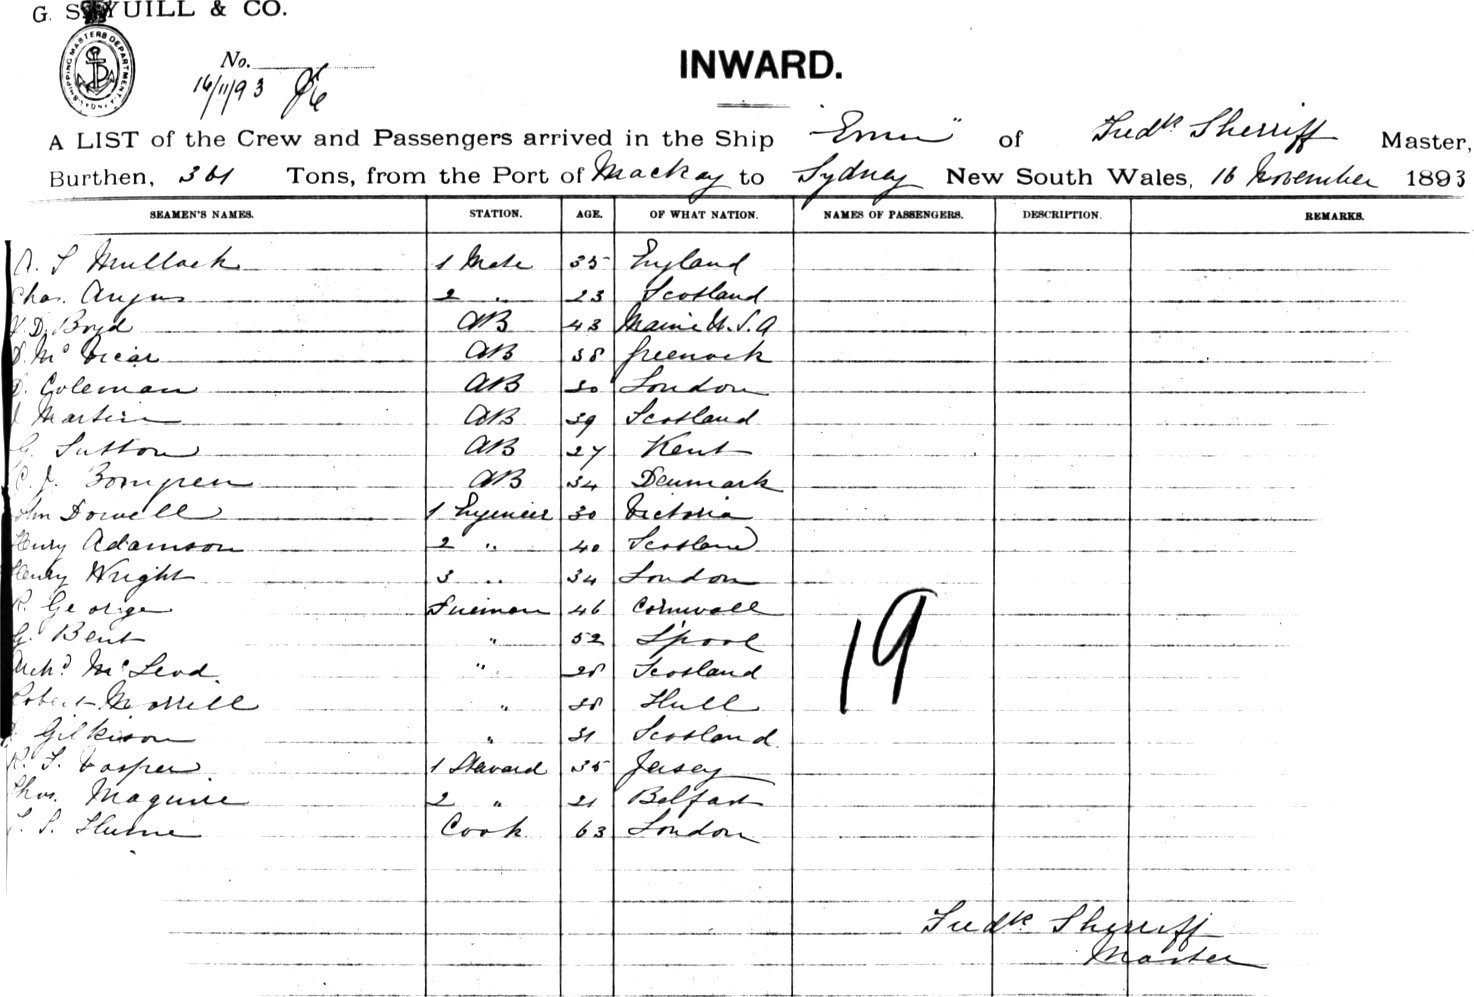 G. S. YUILL & CO.
SHIPPING MASTERS DEPARTMENT
No.
16/11/93
INWARD.
A LIST of the Crew and Passengers arrived in the Ship " " of Fredk Sherriff Master,
Burthen, 361 Tons, from the Port of Mackay to Sydney New South Wales, 16 November 1893
SEAMEN'S NAMES. STATION. AGE. OF WHAT NATION. NAMES OF PASSENGERS. DESCRIPTION. REMARKS.
Mullack 1 Mate 35 England
Chas. Angus 2 " 23 Scotland
D. Boyd AB 43 Maine U.S.A
McVicar AB 38 Greenock
Coleman AB 30 London
Martin AB 39 Scotland
G. Sutton AB 27 Kent
C. J. AB 34 Denmark
John Dowell 1 Engineer 30 Victoria
Henry Adamson 2 " 40 Scotland
Henry Wright 3 " 34 London
R. George Fireman 46 Cornwall
G. Bent " 52 L'pool
Archd McLeod " 28 Scotland
Robert Morrell " 38 Hull
Gilkison " 31 Scotland
R. T. Vosper 1 Steward 35 Jersey
Thos. Maguire 2 " 21 Belfast
S. Hume Cook 63 London
19
Fredk Sherriff
Master